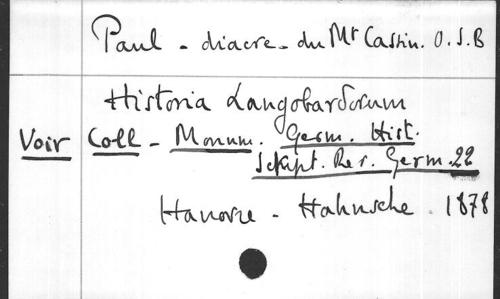 Paul - diacre - du Mt Cassin. O.S.B
Historia Langobardorum
Voir Coll - Monum. Germ. Hist.
Script. Rer. Germ. 22
Hanovre - Hahnsche. 1878